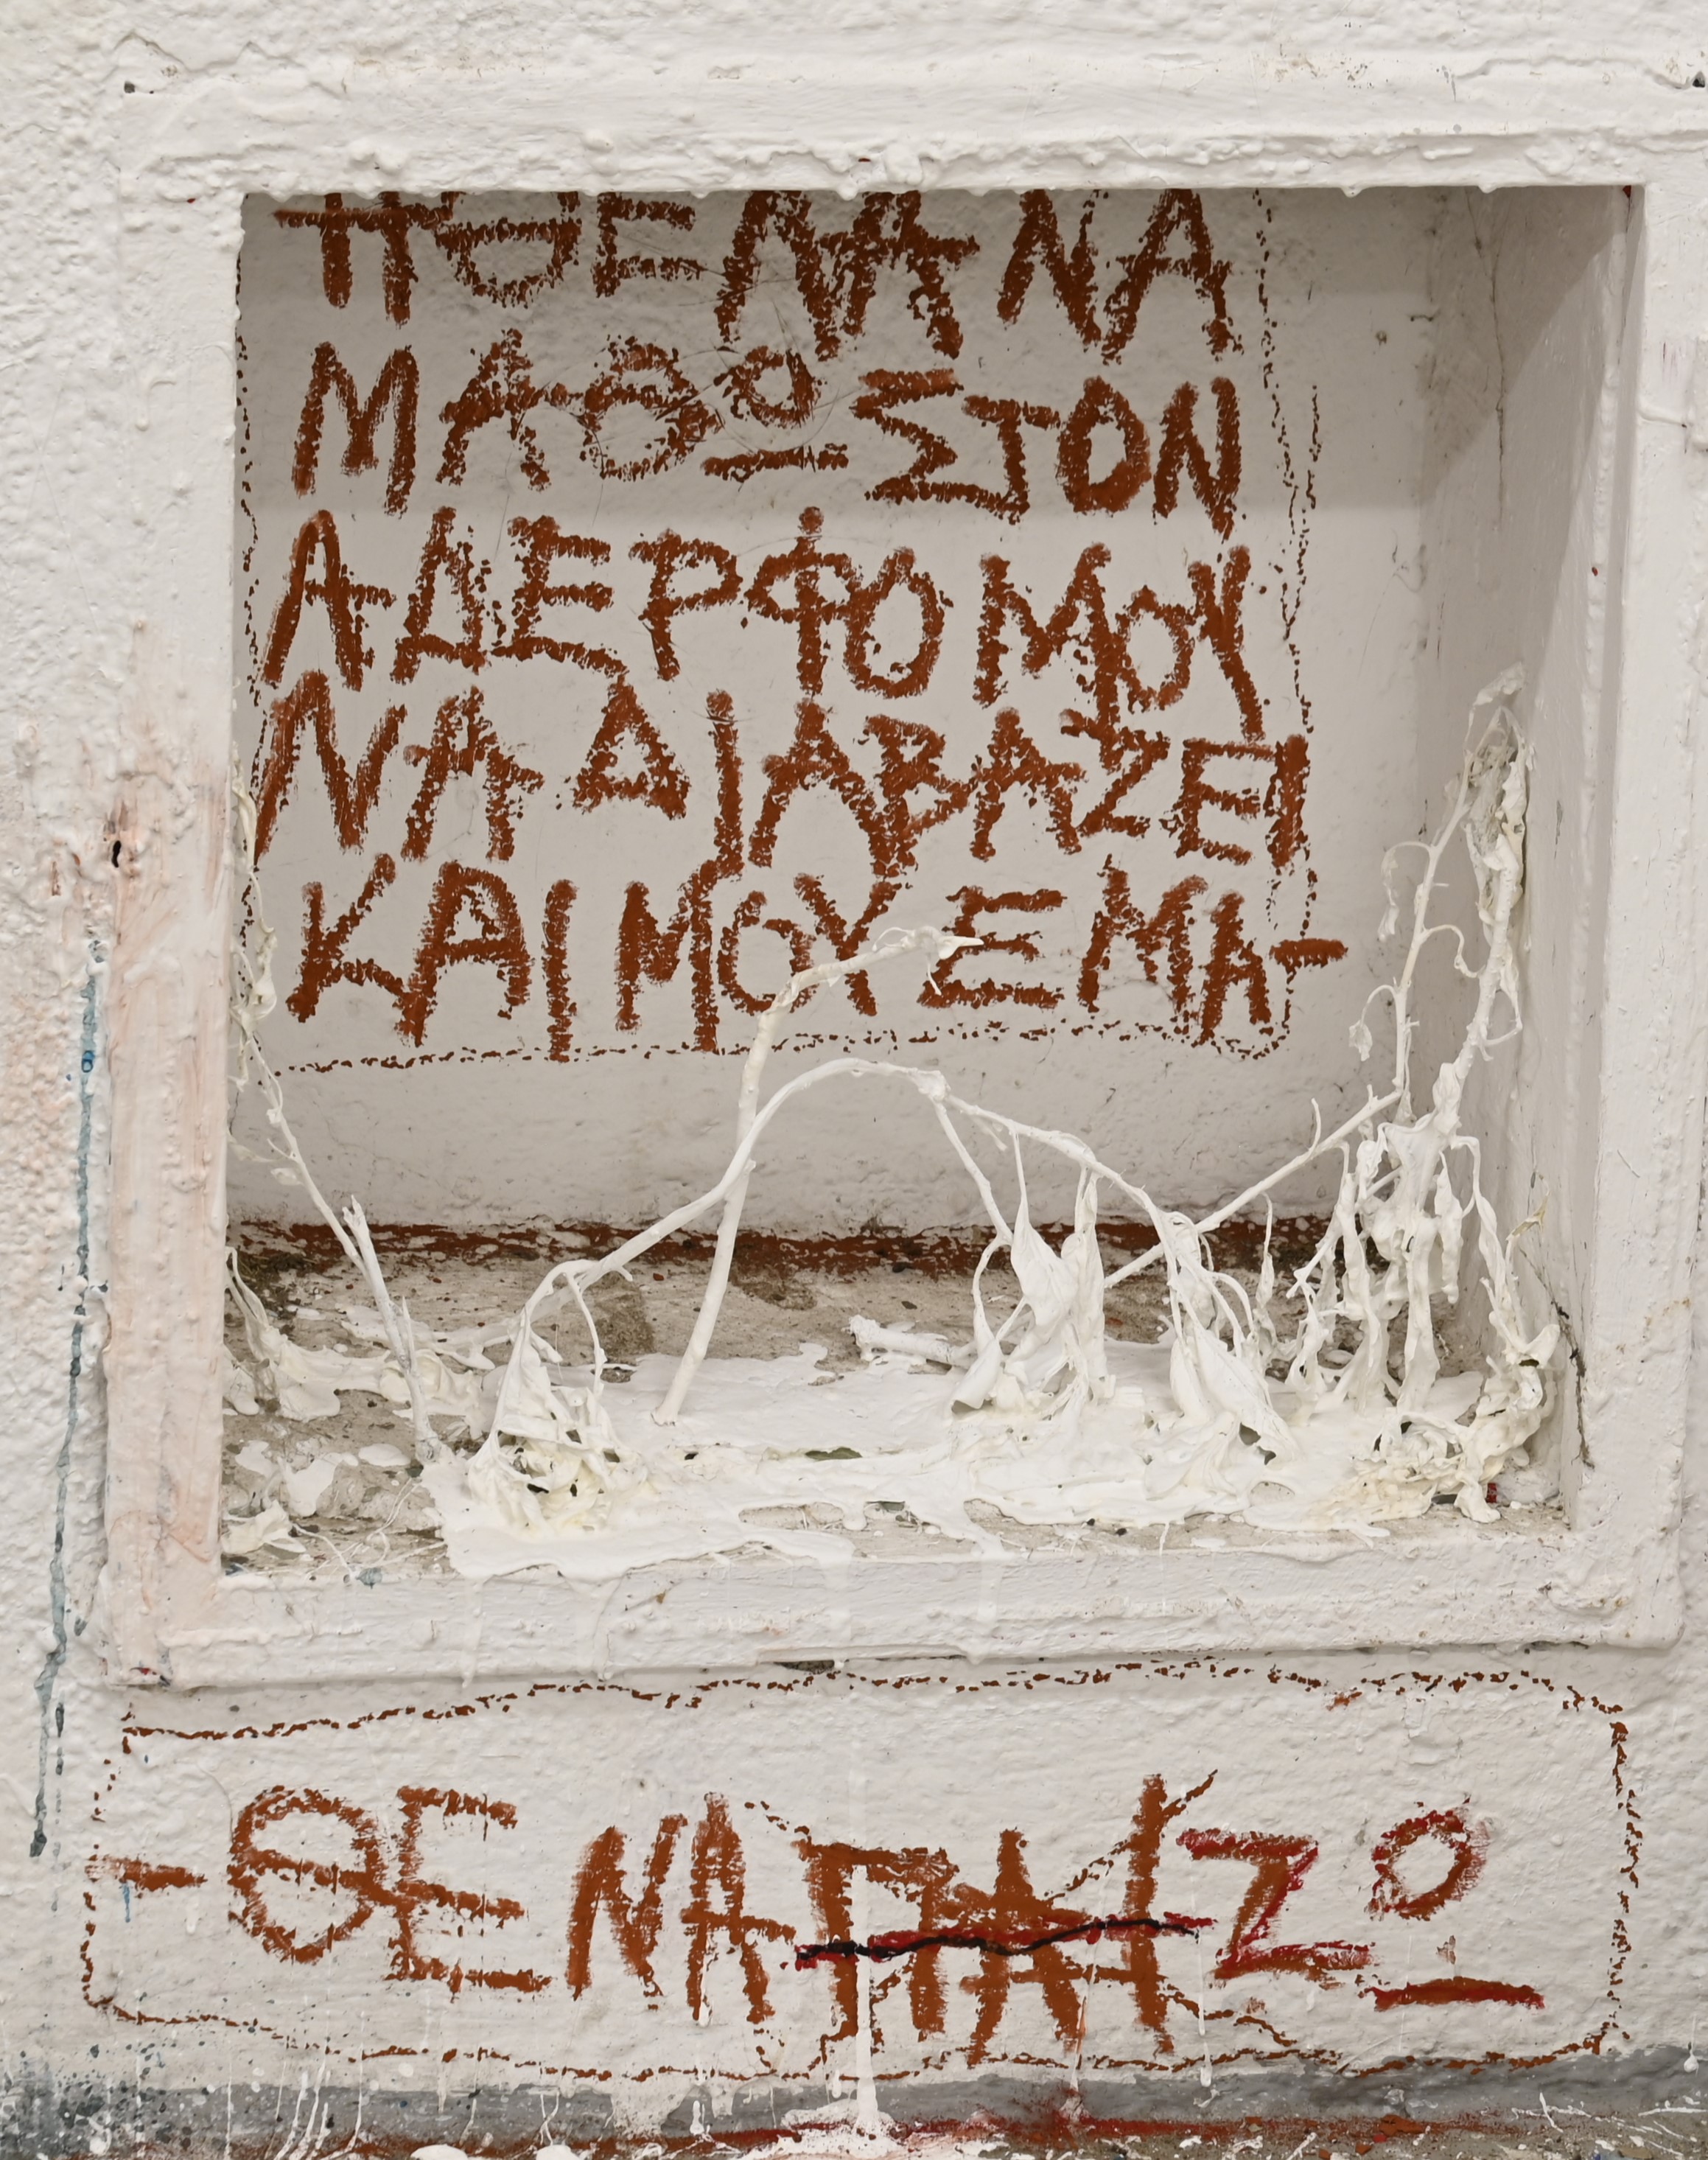 ΗΘΕΛΑ ΝΑ
ΜΑΘΩ ΣΤΟΝ
ΑΔΕΡΦΟ ΜΟΥ
ΝΑ ΔΙΑΒΑΖΕΙ
ΚΑΙ ΜΟΥ ΕΜΑ-
-ΘΕ ΝΑ ΠΑΙΖΩ